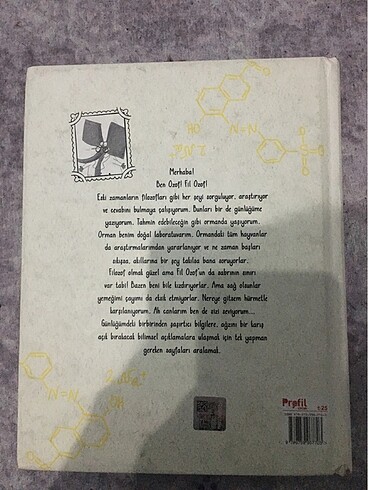 Merhaba!
Ben Ozof! Fil Ozof!
Eski zamanların filozofları gibi her şeyi sorguluyor, araştırıyor
ve cevabını bulmaya çalışıyorum. Bunları bir de günlüğüme
yazıyorum. Tahmin edebileceğin gibi ormanda yaşıyorum.
Orman benim doğal laboratuvarım. Ormandaki tüm hayvanlar
da araştırmalarımdan yararlanıyor ve ne zaman başları
sıkışsa, akıllarına bir şey takılsa bana soruyorlar.
Filozof olmak güzel ama Fil Ozof'un da sabrının sınırı
var tabi! Bazen beni bile kızdırıyorlar. Ama sağ olsunlar
yemeğimi çayımı da eksik etmiyorlar. Nereye gitsem hürmetle
karşılanıyorum. Ah canlarım ben de sizi seviyorum...
Günlüğümdeki birbirinden şaşırtıcı bilgilere, ağzını bir karış
açık bıraktacak bilimsel açıklamalara ulaşmak için tek yapman
gereken sayfaları aralamak.
HO
N=N
OH
N=N
Profil
₺25